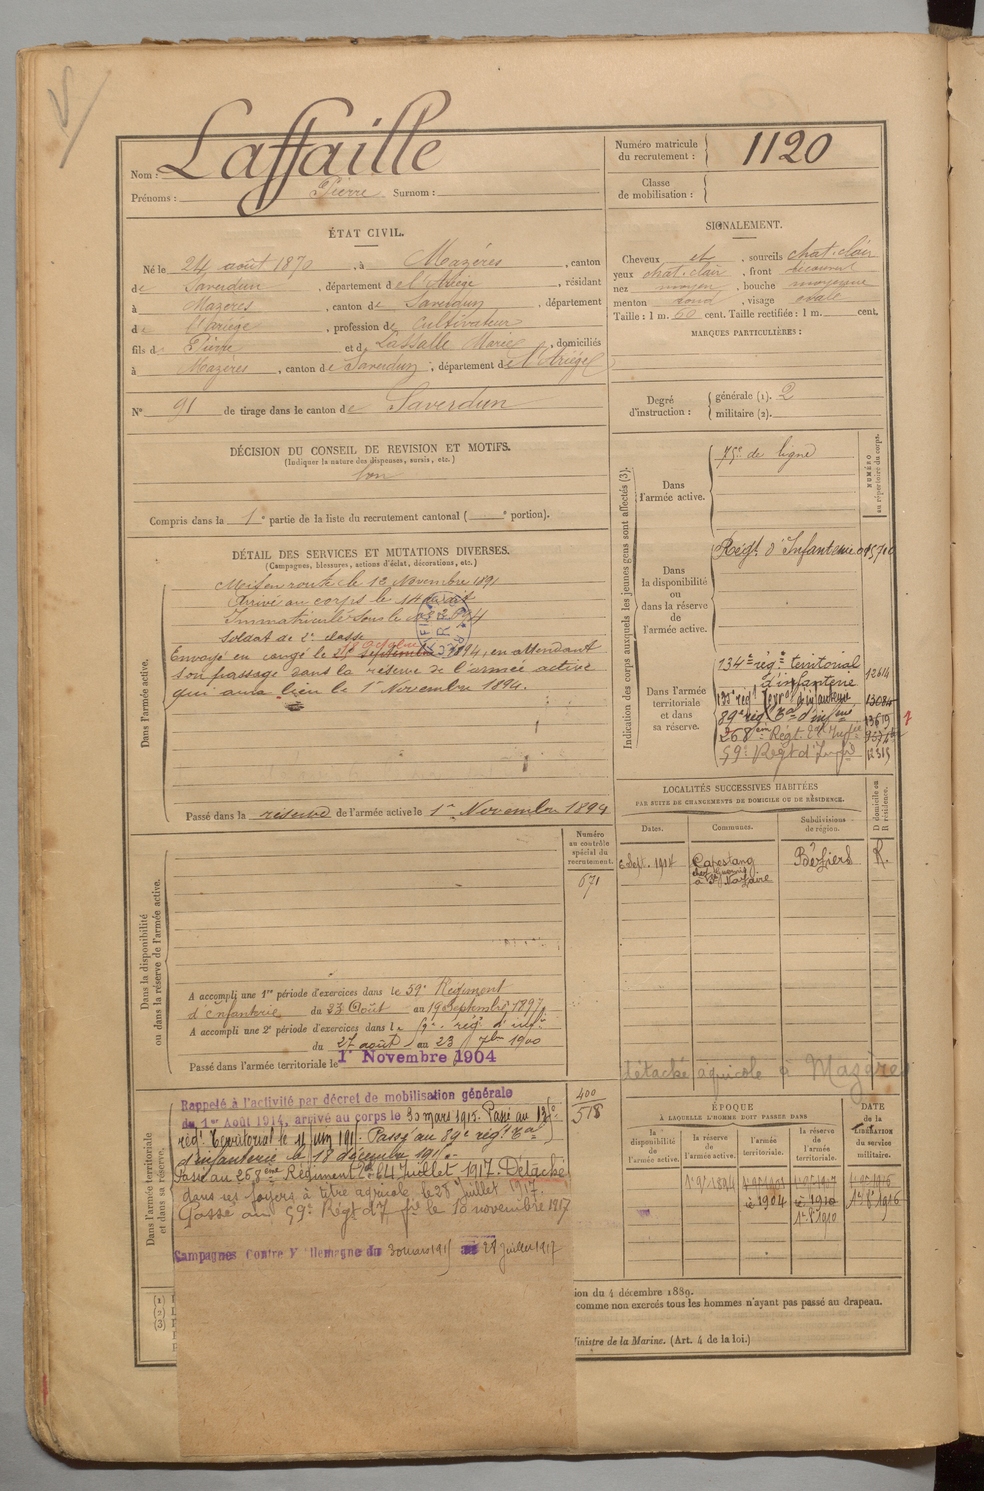 Nom : Laffaille
Prénoms : Pierre Surnom :
Numéro matricule
du recrutement : 1120
Classe
de mobilisation :
ÉTAT CIVIL.
Né le 24 août 1870, à Mazères, canton
de Saverdun, département de l'Ariège, résidant
à Mazères, canton de Saverdun, département
de l'Ariège, profession de cultivateur
fils de Pierre et de Lassalle Marie, domiciliés
à Mazères, canton de Saverdun, département de l'Ariège
N° 91 de tirage dans le canton de Saverdun
SIGNALEMENT.
Cheveux et, sourcils chat. clair
yeux chat. clair, front découvert
nez moyen, bouche moyenne
menton rond, visage ovale
Taille : 1 m. 60 cent. Taille rectifiée : 1 m. cent.
MARQUES PARTICULIÈRES :
Degré
d'instruction :
générale (1). 2
militaire (2).
DÉCISION DU CONSEIL DE REVISION ET MOTIFS.
(Indiquer la nature des dispenses, sursis, etc.)
bon
Compris dans la 1e partie de la liste du recrutement cantonal ( e portion).
DÉTAIL DES SERVICES ET MUTATIONS DIVERSES.
(Campagnes, blessures, actions d'éclat, décorations, etc.)
Dans l'armée active.
Mis en route le 12 Novembre 1891
Arrivé au corps le 14 dudit
Immatriculé sous le
Soldat de 2e classe
Envoyé en congé le Septembre 1894, en attendant
son passage dans la réserve de l'armée active
qui aura lieu le 1er Novembre 1894.
Passé dans la réserve de l'armée active le 1er Novembre 1894
Indication des corps auxquels les jeunes gens sont affectés (3).
NUMÉRO
au répertoire du corps.
Dans
l'armée active.
de ligne
Dans
la disponibilité
ou
dans la réserve
de
l'armée active.
Régt d'Infanterie
Dans l'armée
territoriale
et dans
sa réserve.
134e rég t territorial
d'infanterie 12614
135e régt Terral d'infanterie 13084
89e régt Tal d'infrie 13619
268ème Régt d'Infie
59e Régt d'Infrie 12315
LOCALITÉS SUCCESSIVES HABITÉES
PAR SUITE DE CHANGEMENTS DE DOMICILE OU DE RÉSIDENCE.
Dates. Communes. Subdivisions
de région. D domicile ou
R résidence.
6 Sept. 1904 Capestang Béziers R.
à St Nazaire
détaché agricole à Mazères
Numéro
au contrôle
spécial du
recrutement.
671
Dans la disponibilité
ou dans la réserve de l'armée active.
A accompli une 1re période d'exercices dans le 59e Régiment
d'Infanterie du 23 Août au 19 Septembre 1897.
A accompli une 2e période d'exercices dans le rég. d'inf.
du 27 août au 23 7bre 1900
Passé dans l'armée territoriale le 1er Novembre 1904
Dans l'armée territoriale
et dans sa réserve.
400
578
Rappelé à l'activité par décret de mobilisation générale
du 1er Août 1914, arrivé au corps le 30 mars 1915. Passé au 134e
régt Territorial le 11 juin 191 . Passé au 89e régt Tal
d'infanterie le 18 décembre 191 .
Passé au 268ème Régiment le 4 Juillet 1917. Détaché
dans ses foyers à titre agricole le 28 juillet 1917.
Passé au 59e Régt d'Ifrie le 10 novembre 1917
Campagnes Contre l'Allemagne du 30 mars 1915 au 28 juillet 1917
ÉPOQUE
À LAQUELLE L'HOMME DOIT PASSER DANS
la
disponibilité
de
l'armée active.
la réserve
de
l'armée active.
l'armée
territoriale.
la réserve
de
l'armée
territoriale.
DATE
de la
LIBÉRATION
du service
militaire.
1er 9bre 1894
1904
1910
1er 8bre 1910
1916
(1)
(2)
(3)
ion du 4 décembre 1889.
comme non exercés tous les hommes n'ayant pas passé au drapeau.
Ministre de la Marine. (Art. 4 de la loi.)